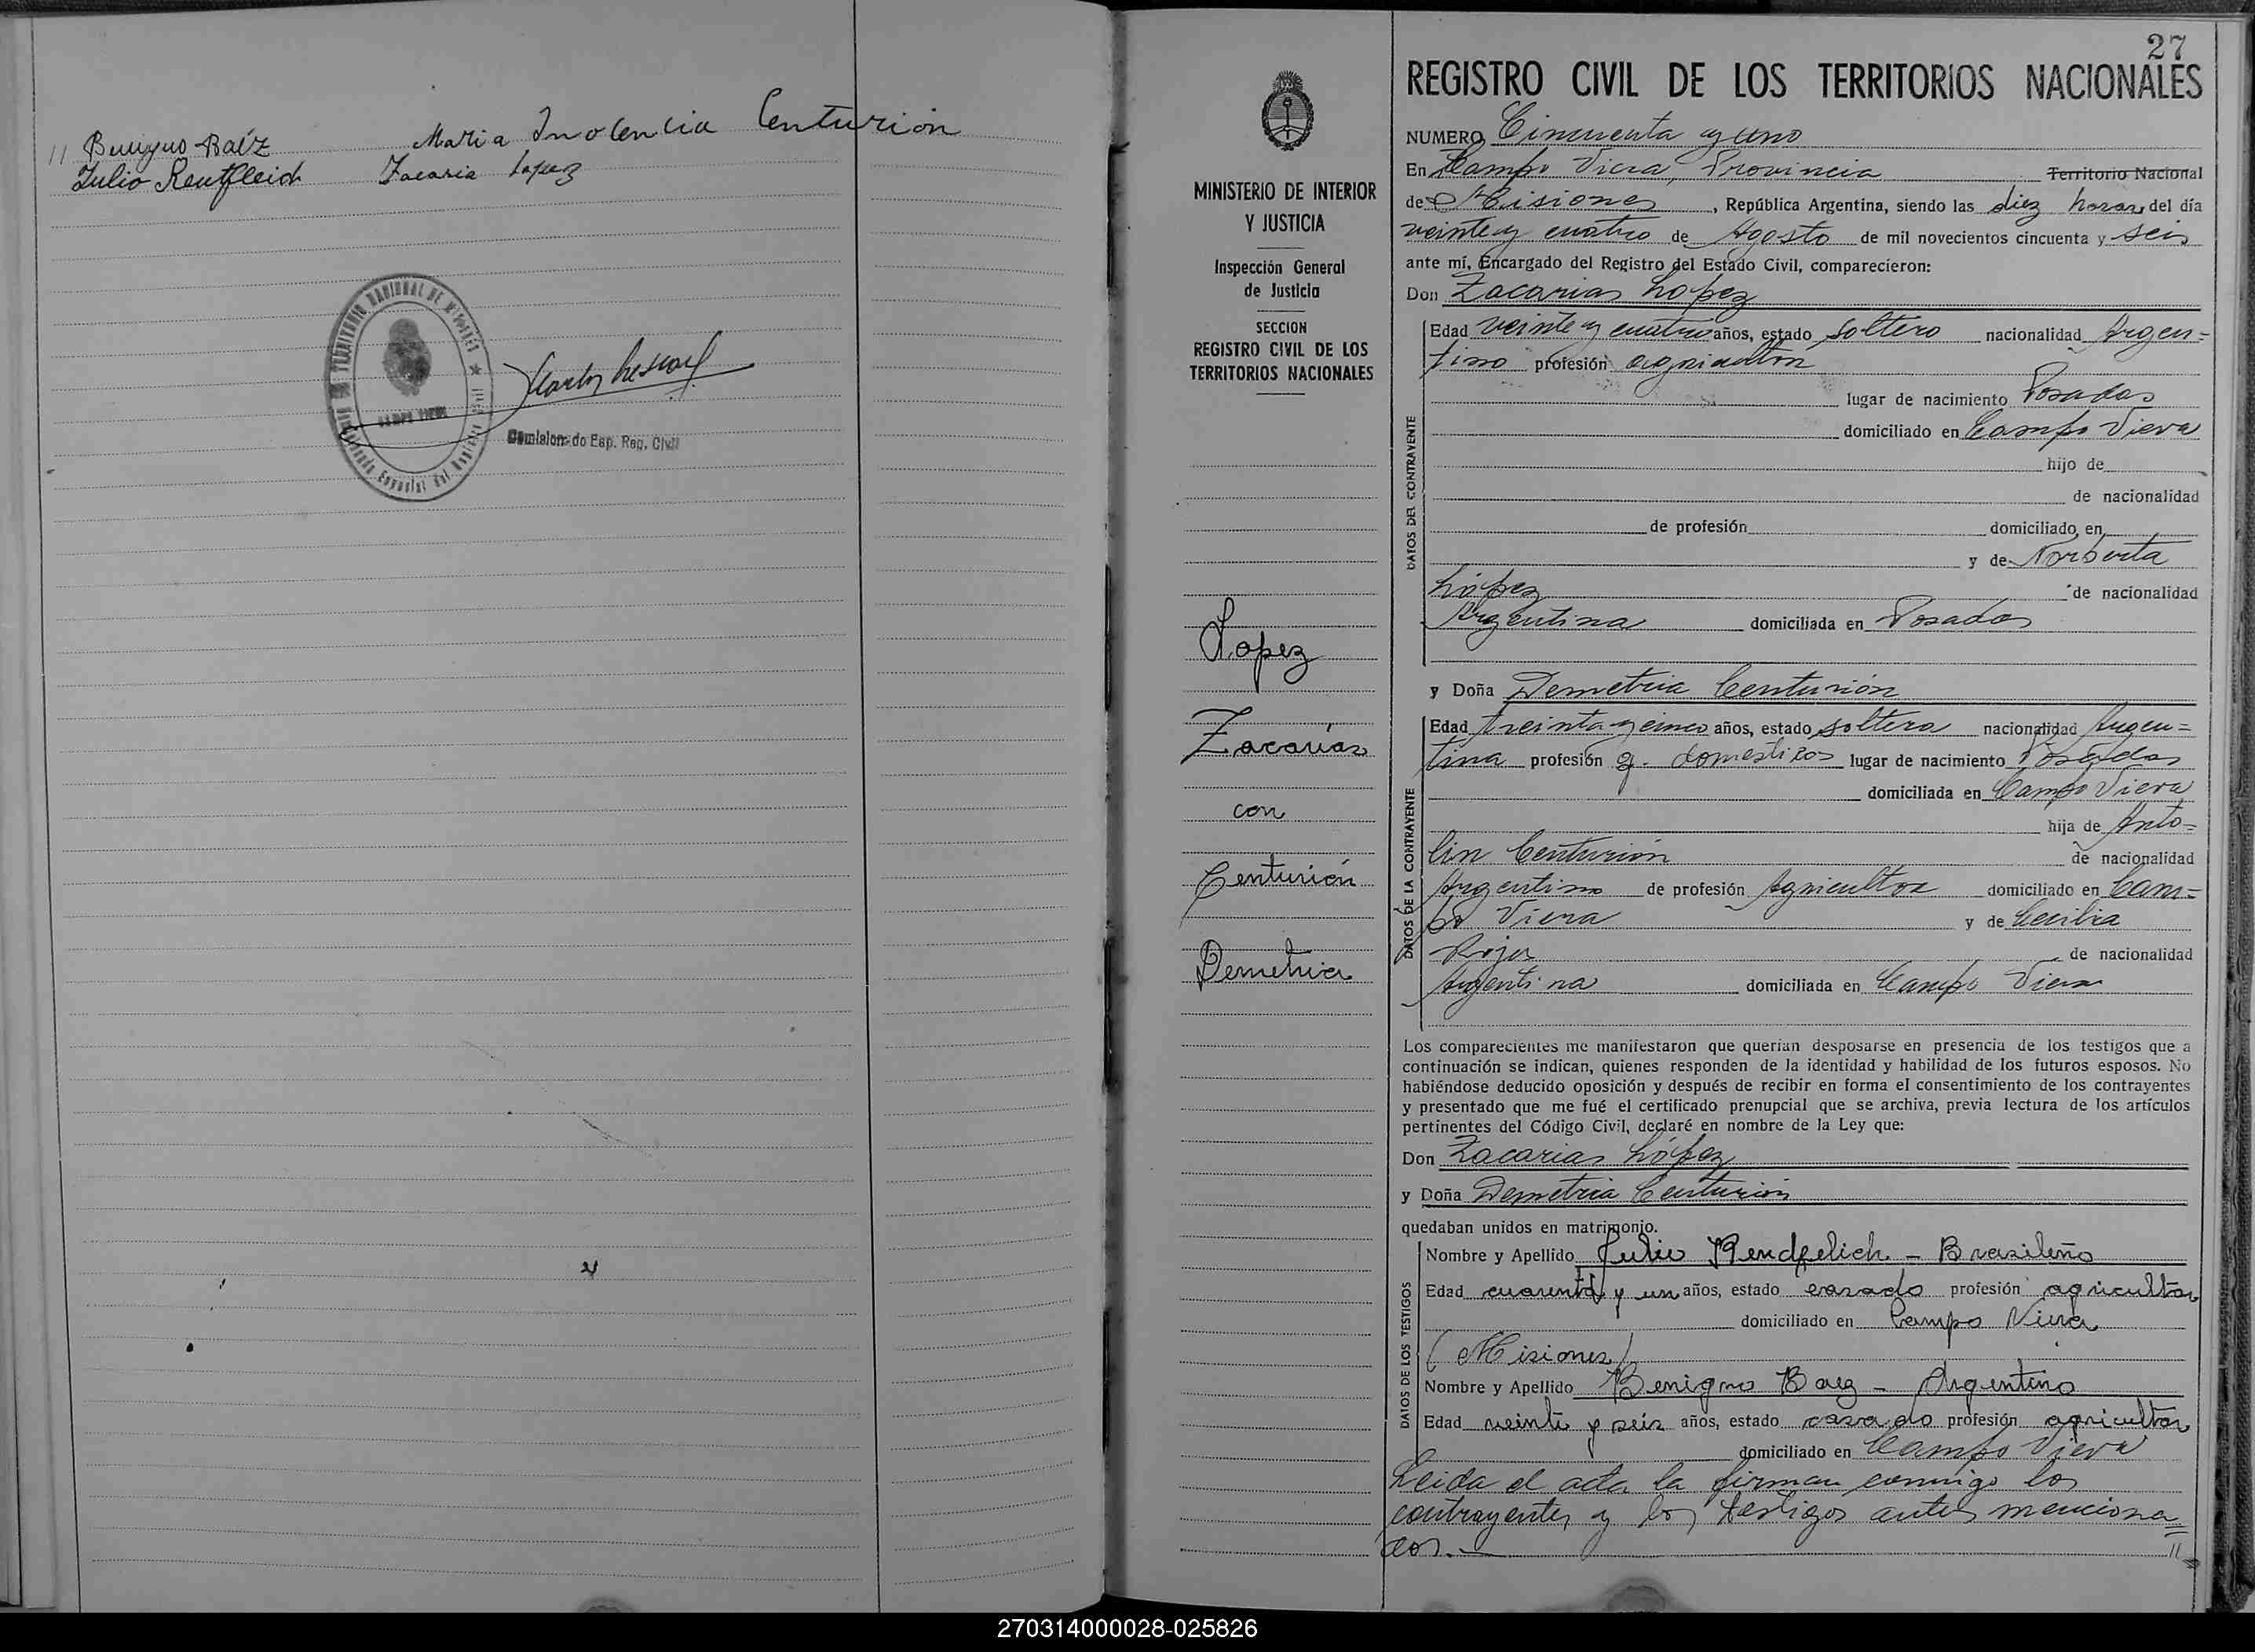 // Benigno Baéz
Maria Inocencia Centurión
Julio Rentfleich
Zacaria Lopez
Comisionado Esp. Reg. Civil
27
REGISTRO CIVIL DE LOS TERRITORIOS NACIONALES
MINISTERIO DE INTERIOR
Y JUSTICIA
Inspección General
de Justicia
SECCION
REGISTRO CIVIL DE LOS
TERRITORIOS NACIONALES
Lopez
Zacarías
con
Centurión
Demetria
NUMERO Cincuenta y uno
En Campo Viera, Provincia Territorio Nacional
de Misiones, República Argentina, siendo las diez horas del día
veinte y cuatro de Agosto de mil novecientos cincuenta y seis
ante mí, Encargado del Registro del Estado Civil, comparecieron:
Don Zacarias Lopez
DATOS DEL CONTRAYENTE
Edad veinte y cuatro años, estado soltero nacionalidad Argen=
tino profesión agricultor
lugar de nacimiento Posadas
domiciliado en Campo Viera
hijo de
de nacionalidad
de profesión domiciliado en
y de Norberta
López de nacionalidad
Argentina domiciliada en Posadas
y Doña Demetria Centurión
DATOS DE LA CONTRAYENTE
Edad treinta y cinco años, estado soltera nacionalidad Argen=
tina profesión q. domesticos lugar de nacimiento Posadas
domiciliada en Campo Viera
hija de Anto=
lin Centurión de nacionalidad
Argentino de profesión Agricultor domiciliado en Cam=
po Viera y de Cecilia
Rojas de nacionalidad
Argentina domiciliada en Campo Viera
Los comparecientes me manifestaron que querían desposarse en presencia de los testigos que a
continuación se indican, quienes responden de la identidad y habilidad de los futuros esposos. No
habiéndose deducido oposición y después de recibir en forma el consentimiento de los contrayentes
y presentado que me fué el certificado prenupcial que se archiva, previa lectura de los artículos
pertinentes del Código Civil, declaré en nombre de la Ley que:
Don Zacarias López
y Doña Demetria Centurión
quedaban unidos en matrimonio.
DATOS DE LOS TESTIGOS
Nombre y Apellido Julio Rendfelich - Brasileño
Edad cuarenta y un años, estado casado profesión agricultor
domiciliado en Campo Viera
(Misiones)
Nombre y Apellido Benigno Baez - Argentino
Edad veinte y seis años, estado casado profesión agricultor
domiciliado en Campo Viera
Leida el acta la firman conmigo los
contrayentes y los testigos antes menciona
dos.- //
270314000028-025826